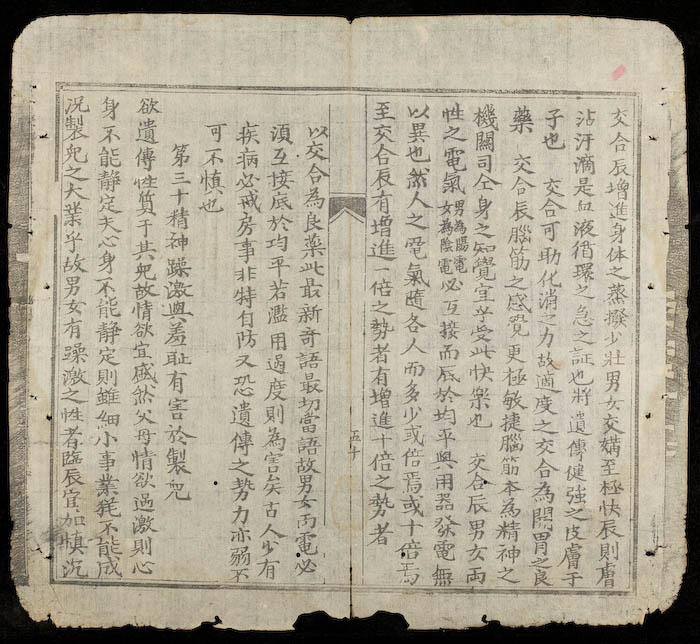 交合辰增進身体之蒸撥少壮男女交媾至極快辰則膚
沾汗滴是血液循環之急之証也將遺傳健強之皮膚于
子也　交合可助化消之力故適度之交合為開胃之良
藥　交合辰腦筋之感覺更極敏捷腦筋本為精神之
機關司仝身之知覺宜乎受此快樂也　交合辰男女両
性之電氣男為陽電女為陰電必互接而底於均平與用器發電無
以異也然人之電氣隨各人而多少或倍焉或十倍焉
至交合辰有增進一倍之勢者有增進十倍之勢者
五十
以交合為良藥此最新奇語最切當語故男女両電必
須互接底於均平若濫用過度則為害矣古人少有
疾病必戒房事非特自防又恐遺傳之勢力亦弱不
可不慎也
第三十精神躁激與羞耻有害於製兒
欲遺傳性質于其兒故情欲宜盛然父母情欲過激則心
身不能静定夫心身不能静定則雖細小事業猶不能成
况製兒之大業乎故男女有躁激之性者臨辰宜加慎沉